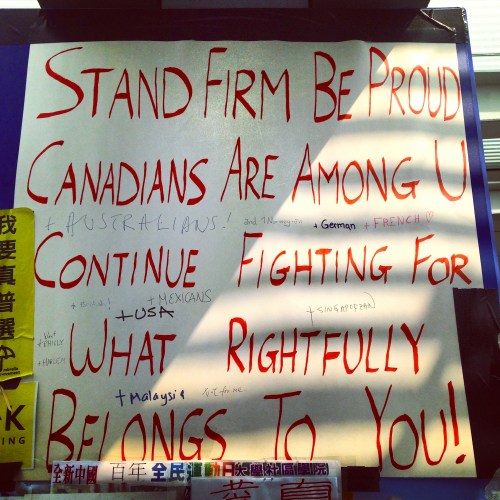 STAND FIRM BE PROUD
CANADIANS ARE AMONG U
+ AUSTRALIANS! + German + FRENCH
CONTINUE FIGHTING FOR
+ MEXICANS
+ SINGAPOREAN
+ USA
WHAT RIGHTFULLY
+ Malaysia
BELONGS TO YOU!
我要真普選
K
ING
全新中國 百年 全民